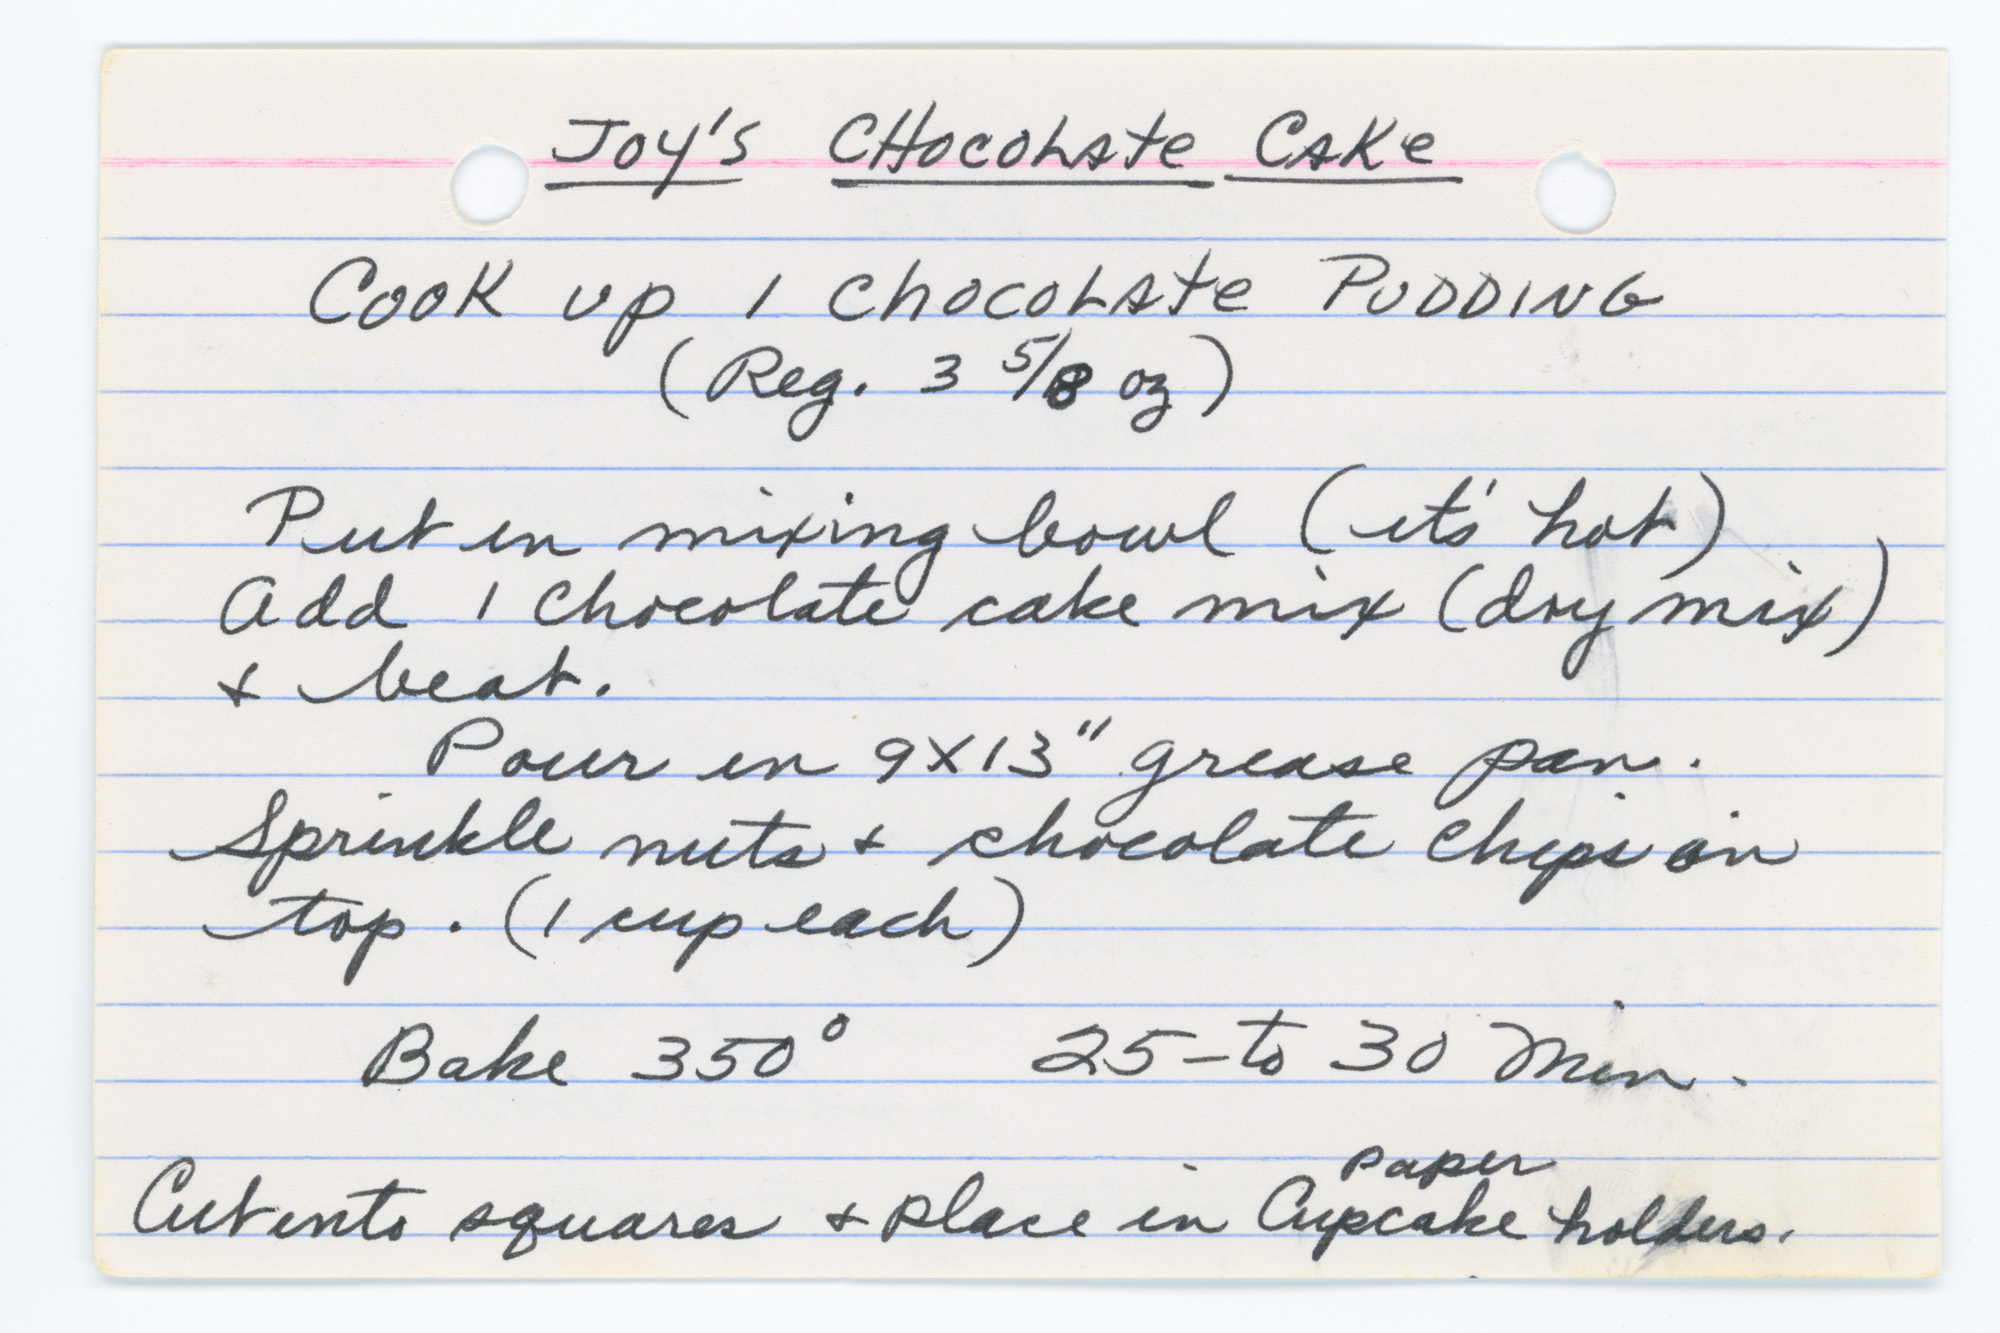 Joy's Chocolate Cake
Cook up 1 chocolate PUDDING
(Reg. 3 5/8 oz)
Put in mixing bowl (it's hot)
Add 1 chocolate cake mix (dry mix)
& beat.
Pour in 9X13" grease pan.
Sprinkle nuts & chocolate chips on
top. (1 cup each)
Bake 350° 25-to 30 Min.
paper
Cut into squares & place in Cupcake holders.